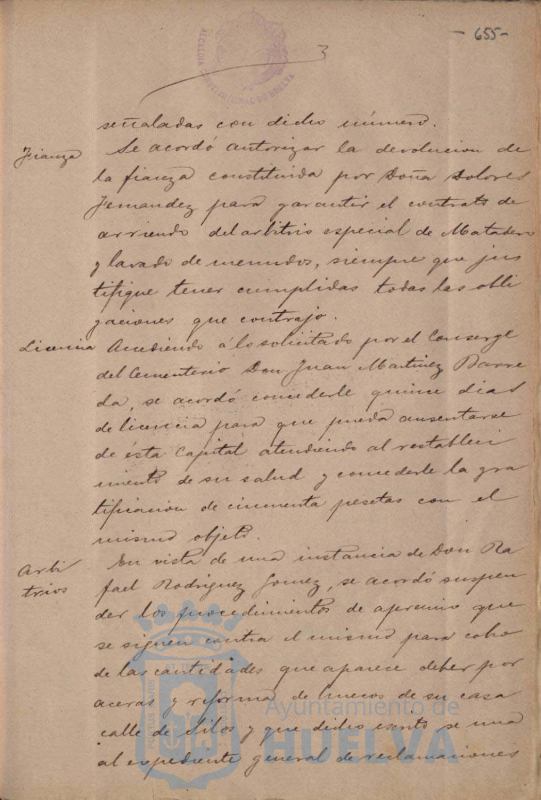 - 655 -
3
señaladas con dicho número.
Fianza
Se acordó autorizar la devolucion de
la fianza constituida por Doña Dolores
Fernandez para garantir el contrato de
arriendo del arbitrio especial de Matadero
y lavado de menudos, siempre que jus
tifique tener cumplidas todas las obli
gaciones que contrajo.
Licencia
Accediendo á lo solicitado por el Conserge
del Cementerio Don Juan Martinez Barre
da, se acordó concederle quince dias
de licencia para que pueda ausentarse
de ésta Capital atendiendo al restableci
miento de su salud y concederle la gra
tificacion de cincuenta pesetas con el
mismo objeto.
Arbi
trios
En vista de una instancia de Don Ra
fael Rodriguez Gomez, se acordó suspen
der los procedimientos de apremio que
se siguen contra el mismo para cobro
de las cantidades que aparece deber por
aceras y reforma de huecos de su casa
calle de Silos y que dicho escrito se una
al expediente general de reclamaciones
Ayuntamiento de
HUELVA